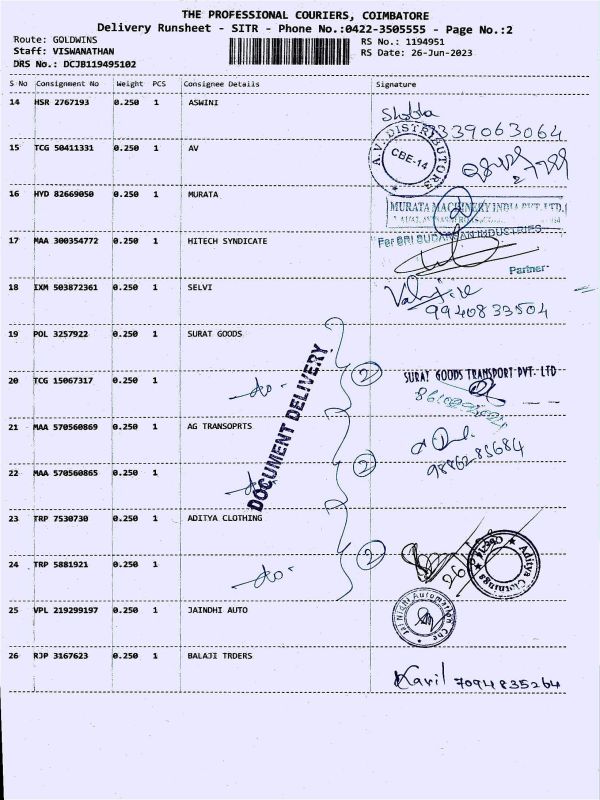 THE PROFESSIONAL COURIERS, COIMBATORE
Delivery Runsheet - SITR - Phone No.:0422-3505555 - Page No.:2
Route: GOLDWINS
RS No.: 1194951
Staff: VISWANATHAN
RS Date: 26-Jun-2023
DRS No.: DCJB119495102
S No Consignment No Weight PCS Consignee Details Signature
14 HSR 2767193 0.250 1 ASWINI
Shobha
9339063064
15 TCG 50411331 0.250 1 AV
A.V. DISTRIBUTORS
CBE-14
16 HYD 82669050 0.250 1 MURATA
MURATA MACHINERY INDIA PVT. LTD.
17 MAA 300354772 0.250 1 HITECH SYNDICATE
For SRI SUDARSAN INDUSTRIES
Partner
18 IXM 503872361 0.250 1 SELVI
9940833504
19 POL 3257922 0.250 1 SURAT GOODS
20 TCG 15067317 0.250 1 -do- 2
SURAT GOODS TRANSPORT PVT. LTD
DOCUMENT DELIVERY
21 MAA 570560869 0.250 1 AG TRANSOPRTS
22 MAA 570560865 0.250 1 -do- 2
9886285684
23 TRP 7530730 0.250 1 ADITYA CLOTHING
24 TRP 5881921 0.250 1 -do- 2
Aditya Clothings
25 VPL 219299197 0.250 1 JAINDHI AUTO
Jai Nidhi Automation Cbe
26 RJP 3167623 0.250 1 BALAJI TRDERS
Kavil 7094835264